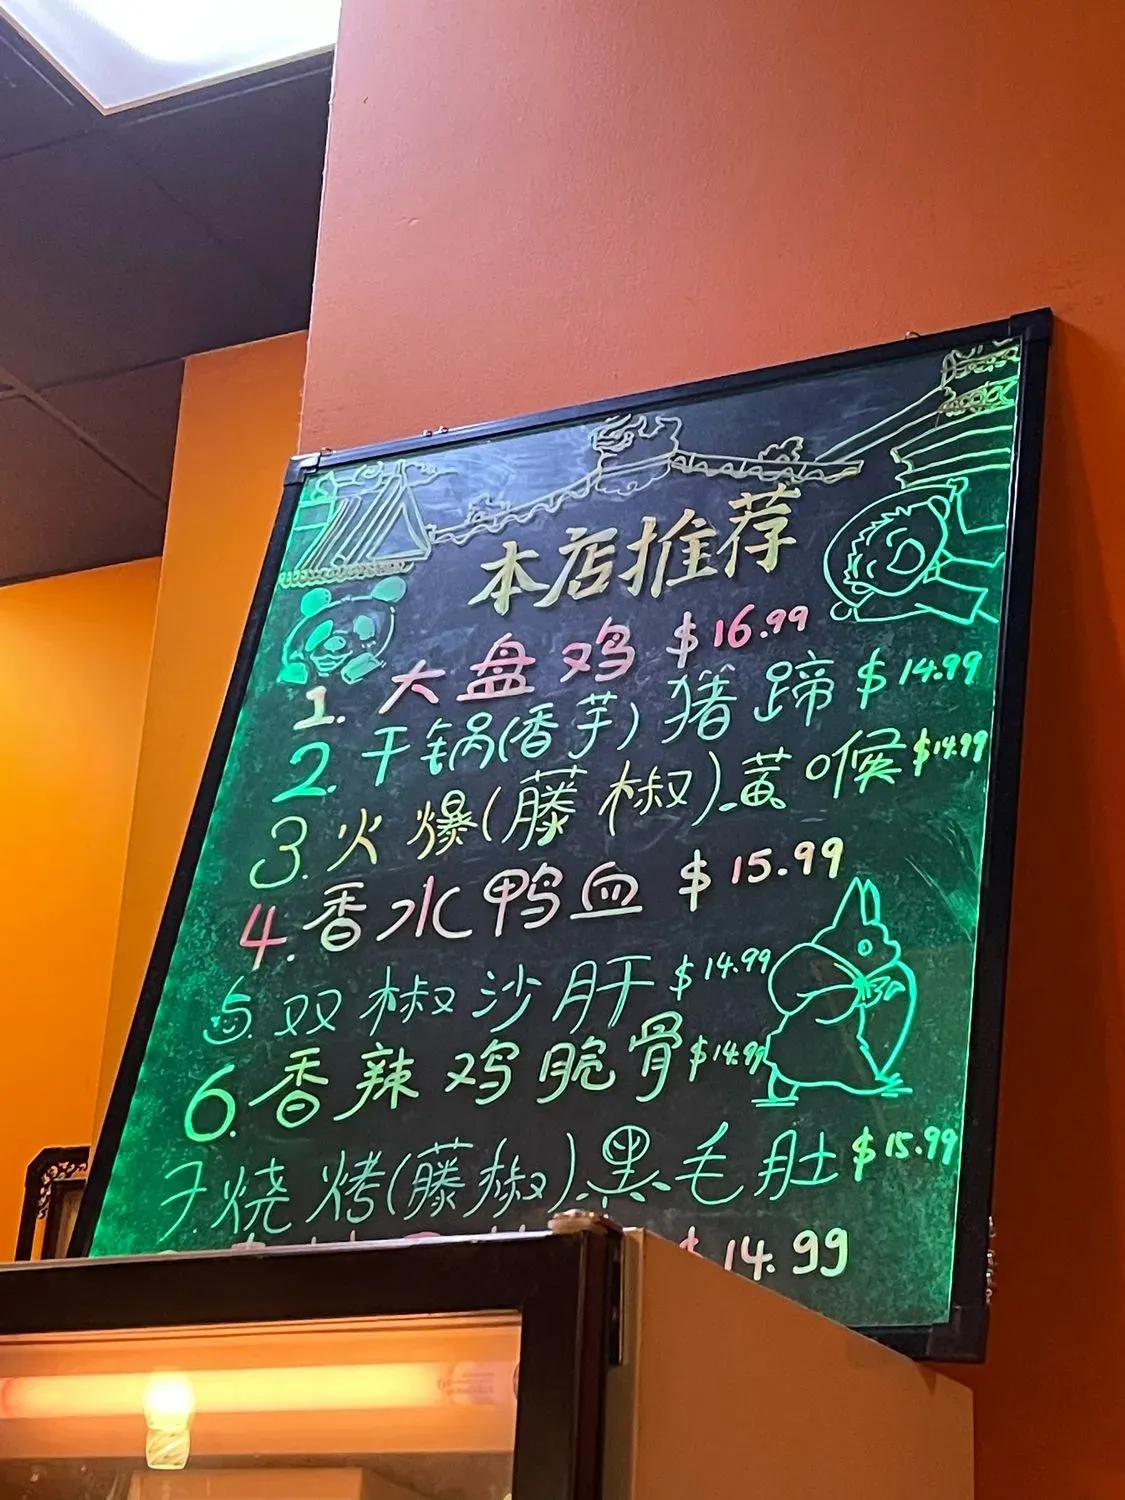 本店推荐
1. 大盘鸡 $16.99
2. 干锅(香芋)猪蹄 $14.99
3. 火爆(藤椒)黄喉 $14.99
4. 香水鸭血 $15.99
5. 双椒沙肝 $14.99
6. 香辣鸡脆骨 $14.99
7. 烧烤(藤椒)黑毛肚 $15.99
$14.99